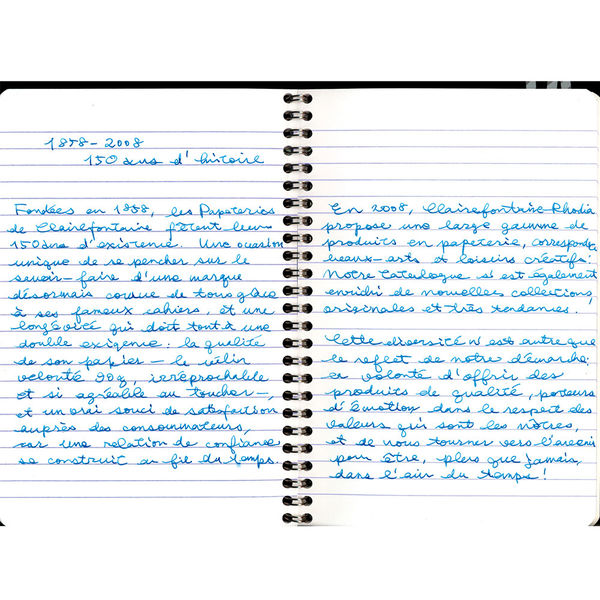 1858-2008
150 ans d'histoire
Fondées en 1858, les Papeteries
de Clairefontaine fêtent leurs
150 ans d'existence. Une occasion
unique de se pencher sur le
savoir-faire d'une marque
désormais connue de tous grâce
à ses fameux cahiers, et une
longévité qui doit tout à une
double exigence : la qualité
de son papier - le vélin
velouté 90g, irréprochable
et si agréable au toucher -,
et un vrai souci de satisfaction
auprès des consommateurs,
car une relation de confiance
se construit au fil du temps.
En 2008, Clairefontaine-Rhodia
propose une large gamme de
produits en papeterie, correspondance
beaux-arts et loisirs créatifs.
Notre Catalogue s'est également
enrichi de nouvelles collections,
originales et très tendances.
Cette diversité n'est autre que
le reflet de notre démarche :
la volonté d'offrir des
produits de qualité, porteurs
d'émotion dans le respect des
valeurs qui sont les nôtres,
et de nous tourner vers l'avenir
pour être, plus que jamais,
dans l'air du temps !